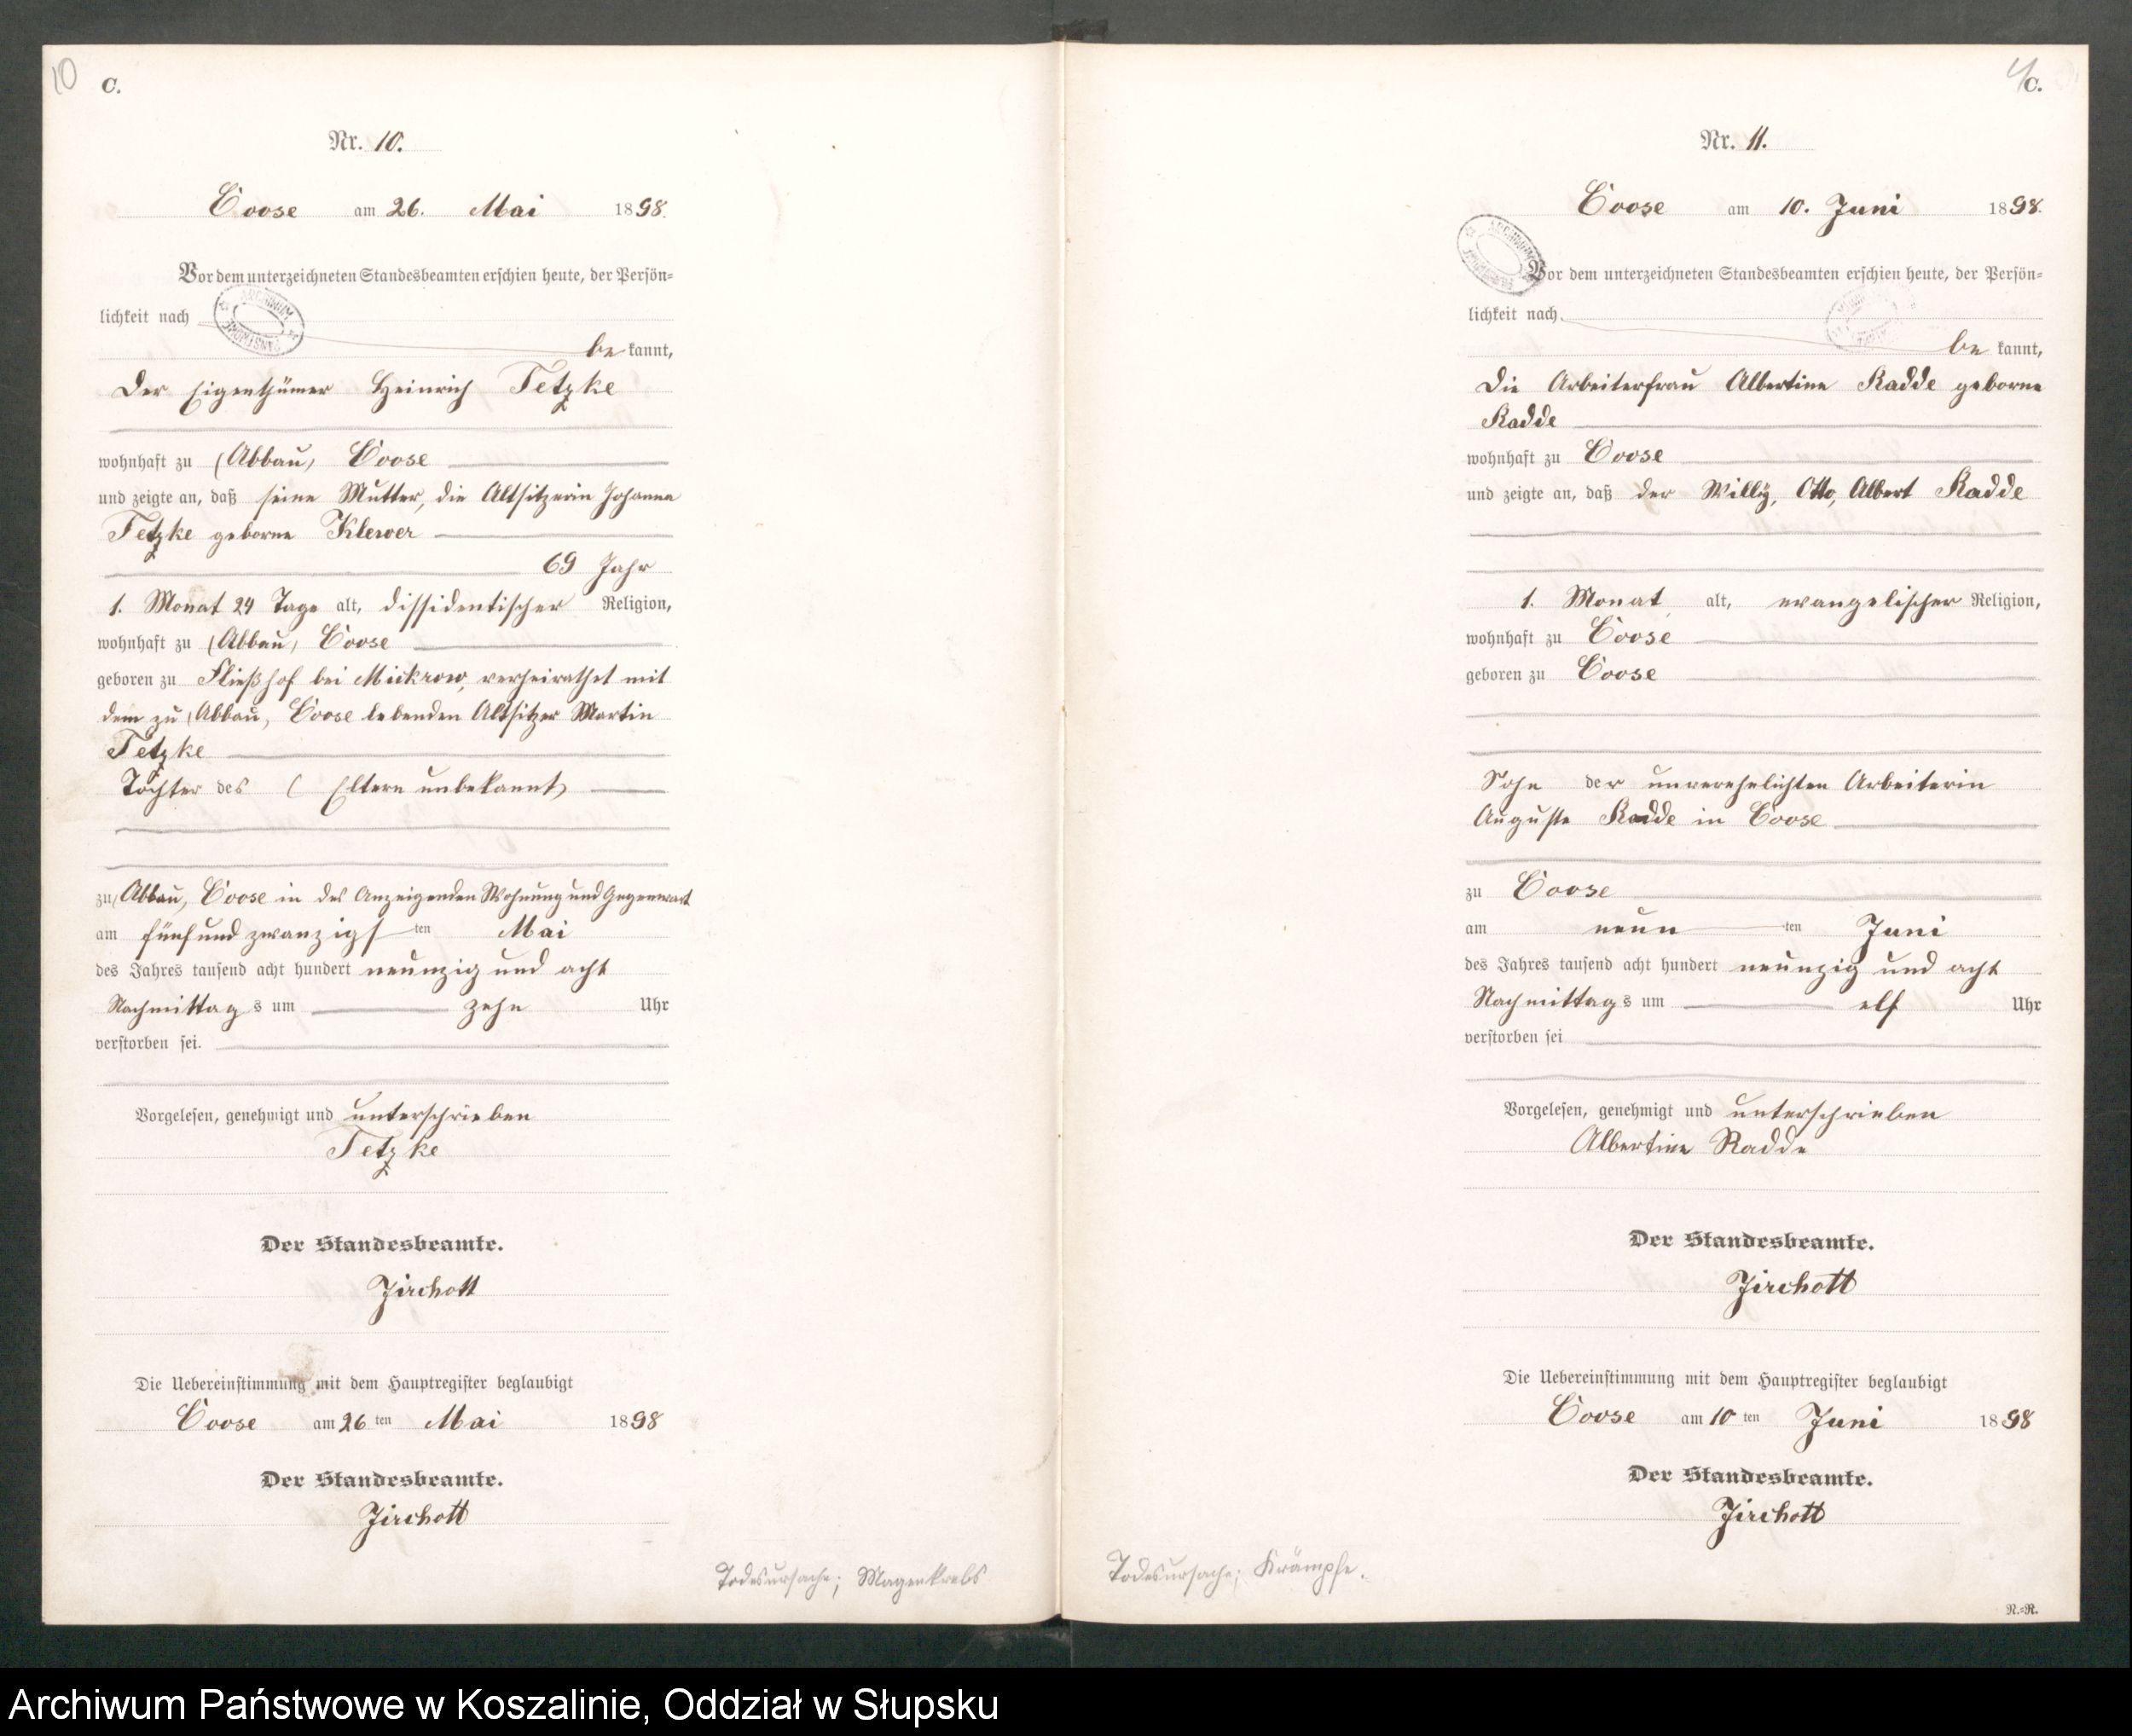 10
C.
Nr. 10.
Coose am 26. Mai 1898.
Vor dem unterzeichneten Standesbeamten erschien heute, der Persön-
lichkeit nach
be kannt,
Der Eigenthümer Heinrich Tetzke
wohnhaft zu (Abbau) Coose
und zeigte an, daß seine Mutter, die Altsitzerin Johanna
Tetzke geborne Klewer
69 Jahr
1. Monat 24 Tage alt, dissidentischer Religion,
wohnhaft zu (Abbau) Coose
geboren zu Fließhof bei Mickrow, verheirathet mit
dem zu (Abbau) Coose lebenden Altsitzer Martin
Tetzke
Tochter des (Eltern unbekannt)
zu (Abbau) Coose in des Anzeigenden Wohnung und Gegenwart
am fünfundzwanzigsten Mai
des Jahres tausend acht hundert neunzig und acht
Nachmittags um zehn Uhr
verstorben sei.
Vorgelesen, genehmigt und unterschrieben
Tetzke
Der Standesbeamte.
Jirchott
Die Uebereinstimmung mit dem Hauptregister beglaubigt
Coose am 26 ten Mai 1898
Der Standesbeamte.
Jirchott
Todesursache; Magenkrebs
C.
Nr. 11.
Coose am 10. Juni 1898.
Vor dem unterzeichneten Standesbeamten erschien heute, der Persön-
lichkeit nach
be kannt,
Die Arbeiterfrau Albertine Radde geborne
Radde
wohnhaft zu Coose
und zeigte an, daß der Willÿ, Otto, Albert Radde
1. Monat alt, evangelischer Religion,
wohnhaft zu Coose
geboren zu Coose
Sohn der unverehelichten Arbeiterin
Auguste Radde in Coose
zu Coose
am neun ten Juni
des Jahres tausend acht hundert neunzig und acht
Nachmittags um elf Uhr
verstorben sei
Vorgelesen, genehmigt und unterschrieben
Albertine Radde
Der Standesbeamte.
Jirchott
Die Uebereinstimmung mit dem Hauptregister beglaubigt
Coose am 10 ten Juni 1898
Der Standesbeamte.
Jirchott
Todesursache; Krämpfe.
R.=R.
Archiwum Państwowe w Koszalinie, Oddział w Słupsku